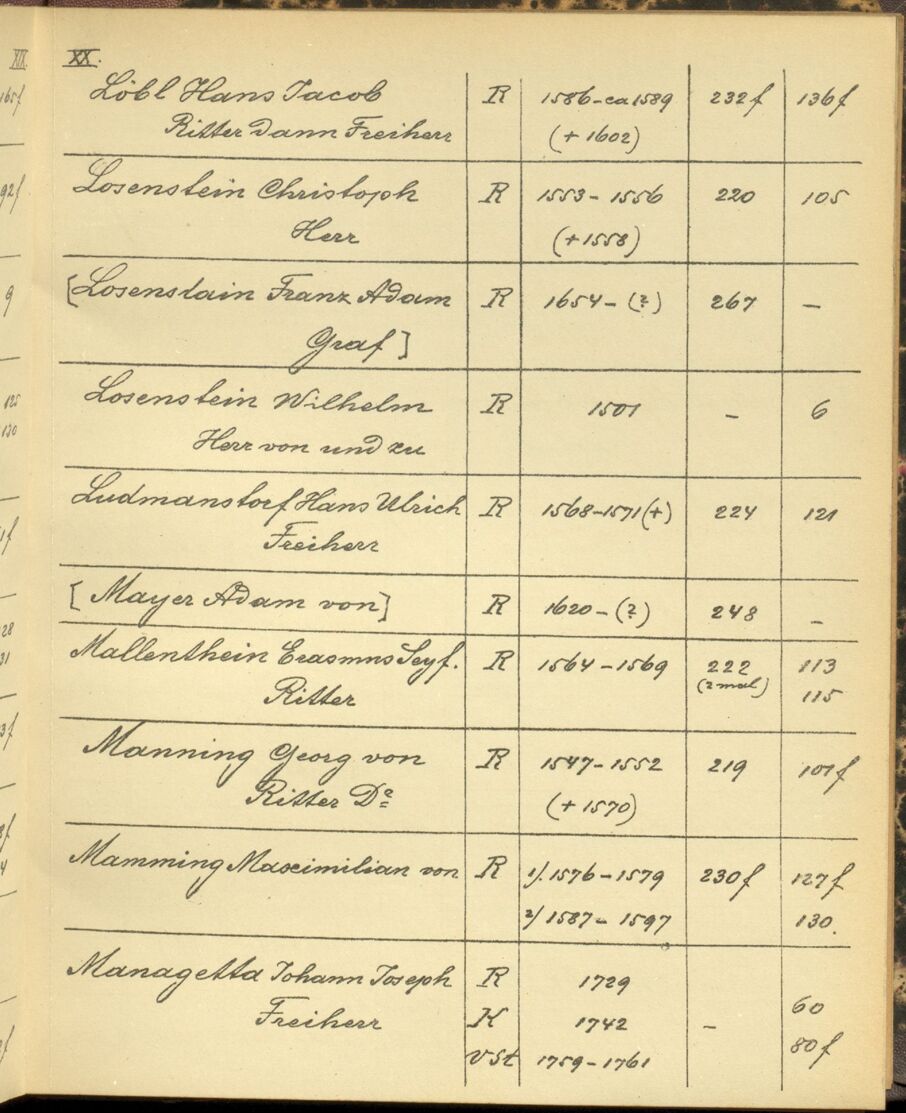 XIX.
XX.
Löbl Hans Jacob R 1586-ca 1589 232f 136f
Ritter dann Freiherr (+ 1602)
Losenstein Christoph R 1553 - 1556 220 105
Herr (+1558)
[Losenstain Franz Adam R 1654 - (?) 267 -
Graf]
Losenstein Wilhelm R 1501 - 6
Herr von und zu
Ludmanstorf Hans Ulrich R 1568-1571(+) 224 121
Freiherr
[Mayer Adam von] R 1620-(?) 248 -
Mallenthein Erasmus Seyf. R 1564-1569 222 113
Ritter (2 mal) 115
Manning Georg von R 1547-1552 219 101f
Ritter Dr (+ 1570)
Mamming Maximilian von R 1/. 1576-1579 230f 127f
2/ 1587-1597 130.
Managetta Johann Joseph R 1729
Freiherr K 1742 - 60
VSt 1759-1761 80f